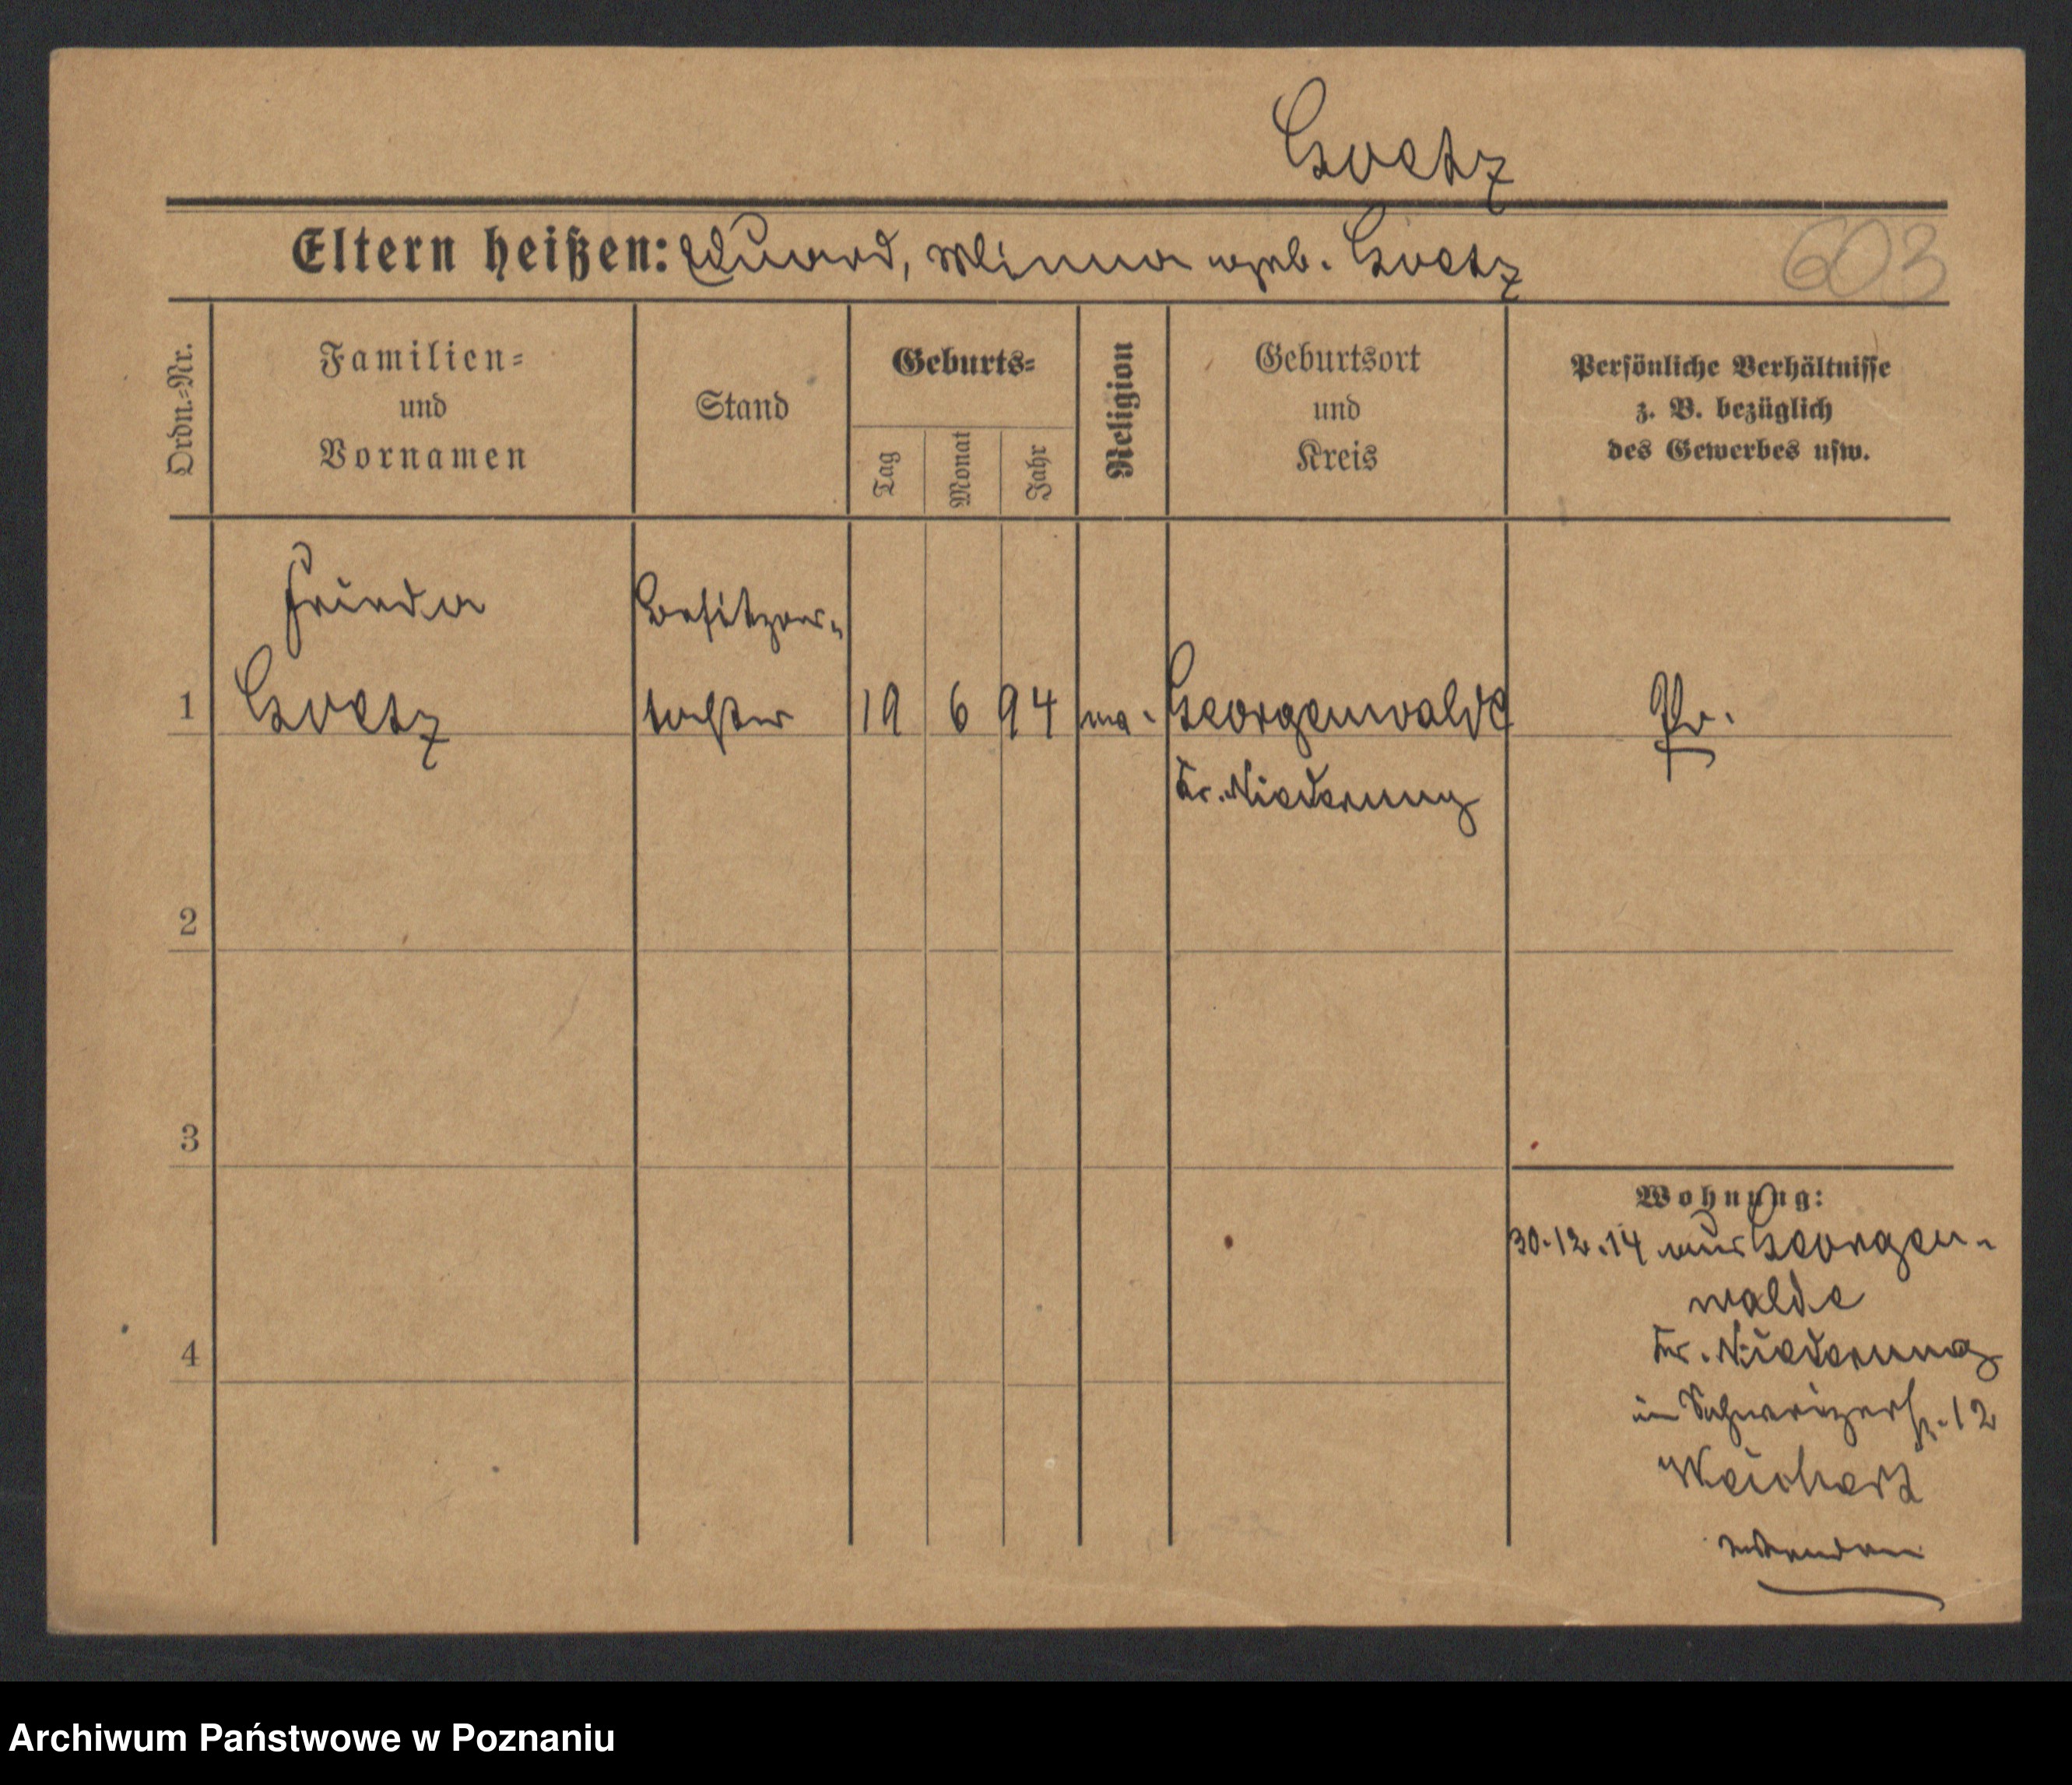 Goetz
Eltern heißen: Eduard, Minna geb. Goetz
603
Ordn.=Nr.
Familien=
und
Vornamen
Stand
Geburts=
Tag
Monat
Jahr
Religion
Geburtsort
und
Kreis
Persönliche Verhältnisse
z. B. bezüglich
des Gewerbes usw.
Frieda
Goetz
Besitzers-
tochter
1
19 6 94
Georgenwalde
Kr. Niederung
Pr.
2
3
4
Wohnung:
30.12.14 aus Georgen-
walde
Kr. Niederung
in Schweizerstr. 12
Weichert
wenden
Archiwum Państwowe w Poznaniu